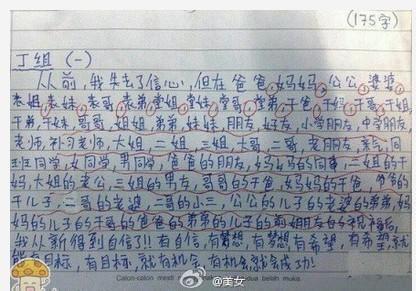 (175字)
丁组 (一)
从前,我失去了信心,但在爸爸,妈妈,公公,婆婆,
表姐,表妹,表哥,表弟,堂姐,堂妹,堂哥,堂弟,干爸,干妈,干哥,干姐,
干弟,干妹,哥哥,姐姐,弟弟,妹妹,朋友,好友,小学朋友,中学朋友
老师,补习老师,大姐,二姐,三姐,大哥,二哥,老朋友,同
班同学,女同学,男同学,爸爸的朋友,妈妈的同事,二姐的干
妈,大姐的老公,三姐的男友,哥哥的干爸,妈妈的干爸,爷爷的
干儿子,二哥的老婆,二哥的小三,公公的儿子的老婆的弟弟,妈
妈的儿子的干哥的爸爸的弟弟的儿子的前女朋友的祝福后,
我从新得到自信了!!有自信,有梦想,有梦想有希望,有希望,就
能 目标,有目标,就有机会,有机会就会成功!
Calon-calon mesti
belah muka
@美女